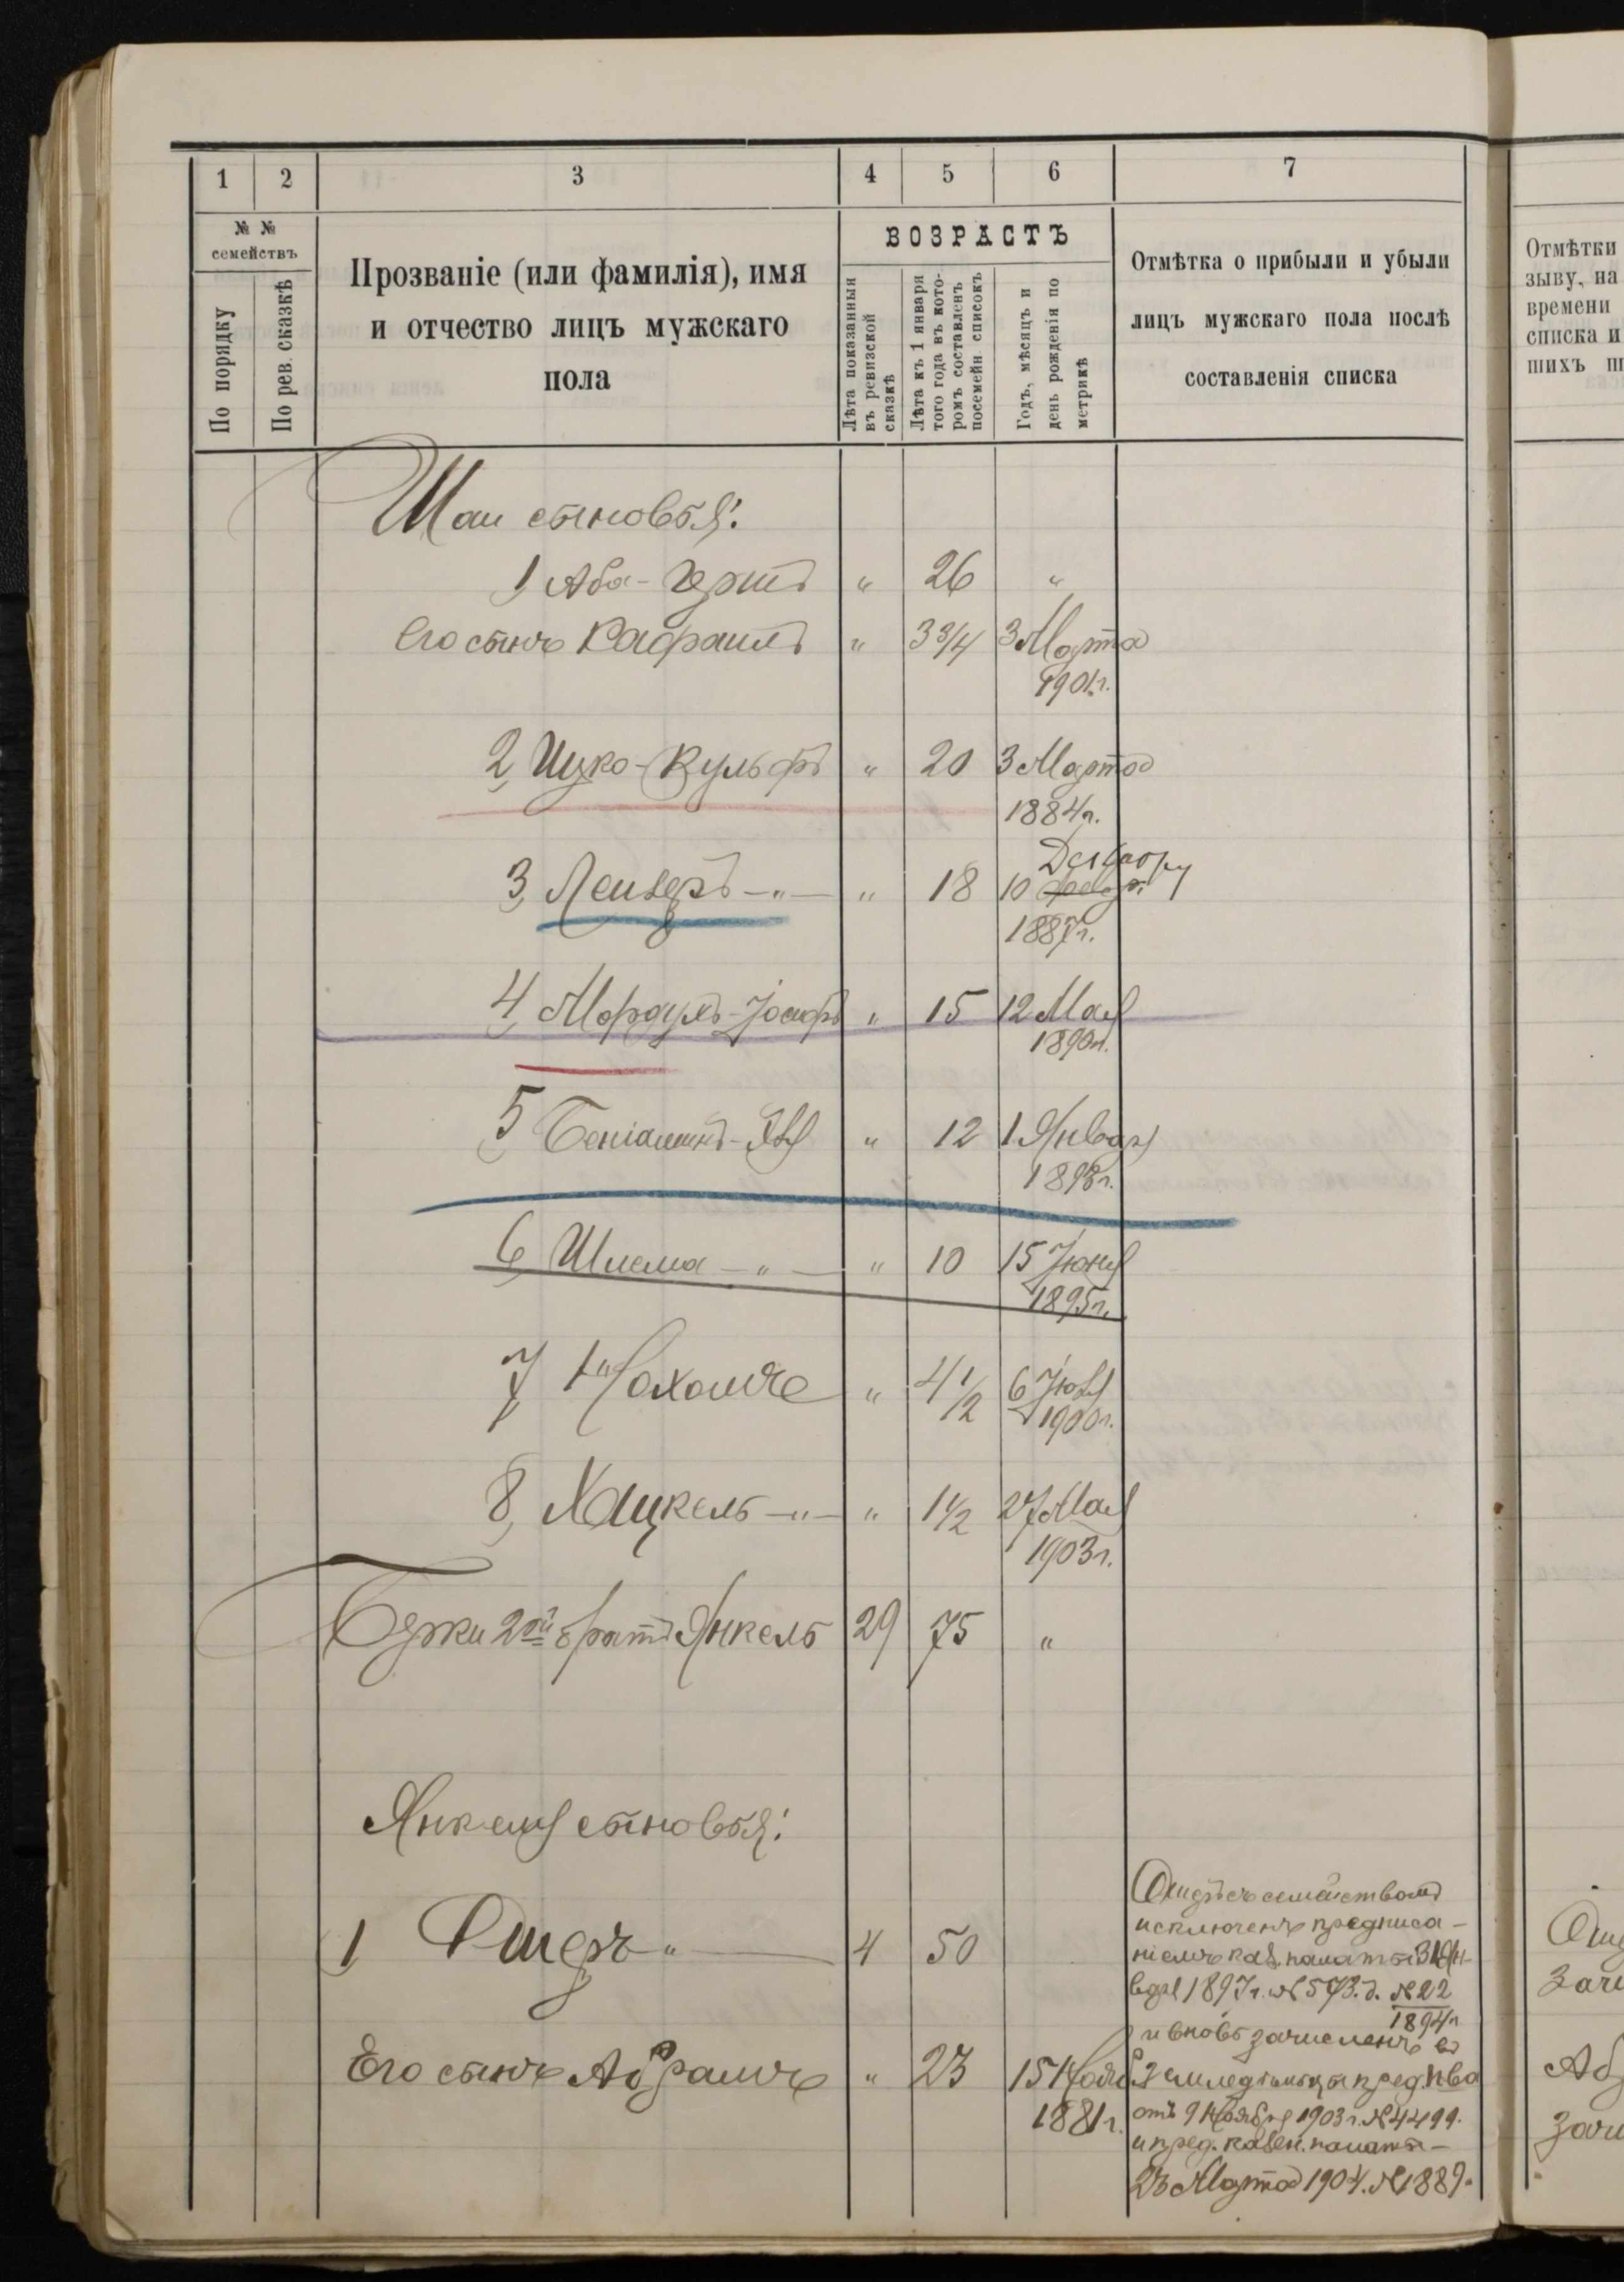 1 2 3 4 5 6 7
№ №
семействъ
По порядку
По рев. сказкѣ
Прозваніе (или фамилія), имя
и отчество лицъ мужскаго
пола
ВОЗРАСТЪ
Лѣта показанныя
въ ревизской
сказкѣ
Лѣта къ 1 января
того года въ кото-
ромъ составленъ
посемейн. списокъ
Годъ, мѣсяцъ и
день рожденія по
метрикѣ
Отмѣтка о прибыли и убыли
лицъ мужскаго пола послѣ
составленія списка
Отмѣтки
зыву, на
времени
списка и
шихъ
Шаи сыновья:
1) Аба-Гершъ " 26 "
Его сынъ Рафаилъ " 3 3/4 3 Марта
1901 г.
2) Ицко-Вульфъ " 20 3 Марта
1884 г.
Декабря
3) Лейзеръ —"— " 18 10
1887 г.
4) Мордухъ-Іосифъ " 15 12 Мая
1890 г.
5) Беніаминъ- " 12 1 Января
1893 г.
6) Шлема —"— " 10 15 Іюня
1895 г.
7) " 4 1/2 6 Іюля
1900 г.
8) Хацкель —"— " 1 1/2 27 Мая
1903 г.
Берки 2ой братъ Янкель 29 75 "
Янкеля сыновья:
1) Ошеръ " — 4 50
Ошеръ съ семействомъ
исключенъ предписа-
ніемъ каз. палаты 31 Ян-
варя 1897 г. № 573. д. № 22
1894 г
и вновь зачисленъ въ
Его сынъ Абрамъ " 23 15 Ноября
1881 г.
земледѣльцы пред.
отъ 9 Ноября 1903 г. № 4499.
и пред. казен. палаты —
23 Марта 1904. № 1889.
Ош
зачи
Аб
зачи